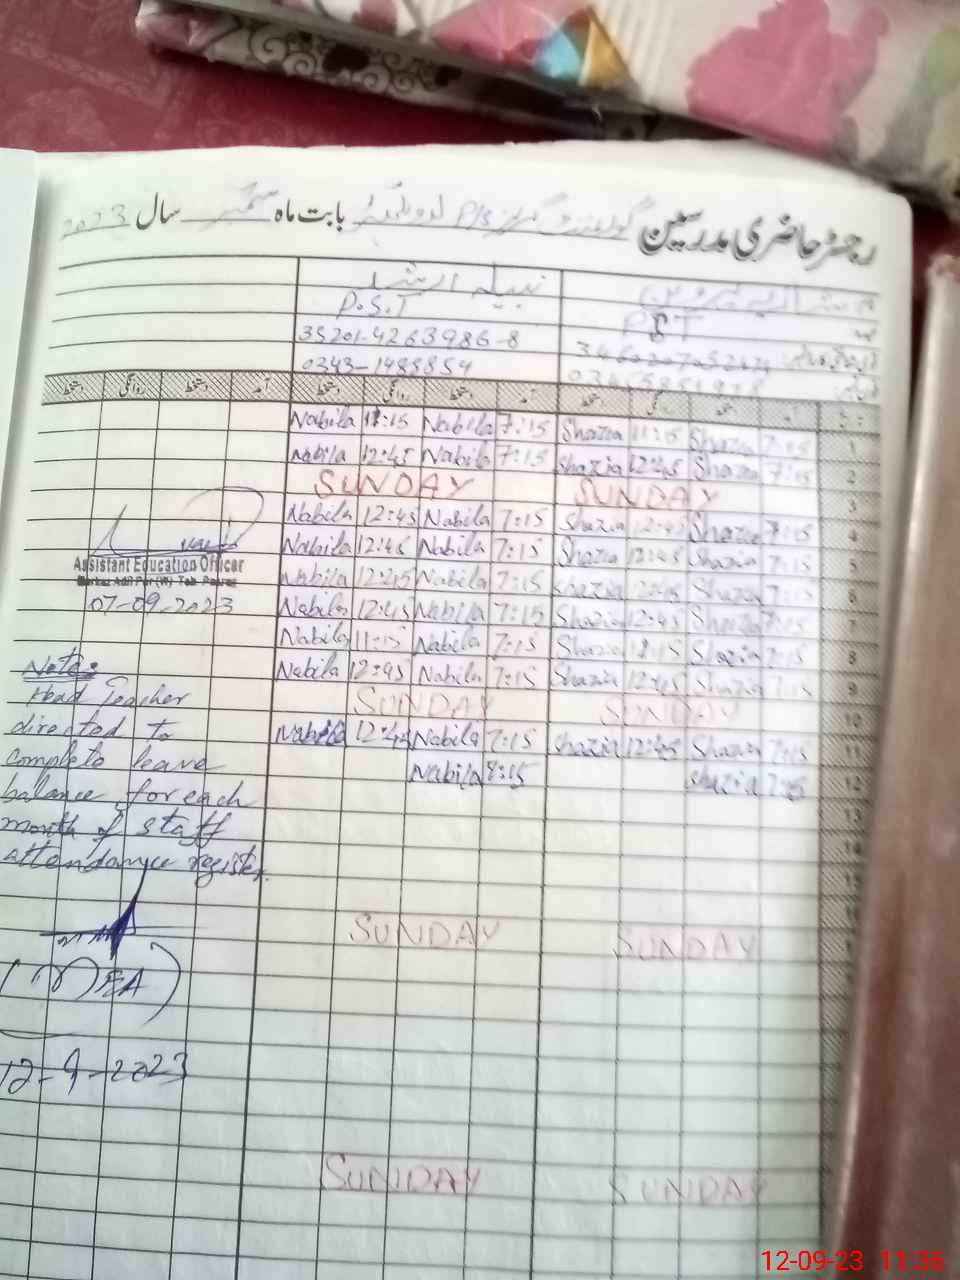 رجسٹر حاضری مدرسین گورنمنٹ گرلز P/S بابت ماہ ستمبر سال 2023
نبیلہ ارشد
P.S.T P S T
35201-4263986-8
0343-1488854
دستخط روانگی دستخط آمد دستخط روانگی دستخط آمد دستخط
Nabila 11:15 Nabila 7:15 Shazia 11:15 Shazia 7:15 1
Nabila 12:45 Nabila 7:15 Shazia 12:45 Shazia 7:15 2
SUNDAY SUNDAY 3
Nabila 12:45 Nabila 7:15 Shazia 12:45 Shazia 7:15 4
Nabila 12:45 Nabila 7:15 Shazia 12:45 Shazia 7:15 5
Nabila 12:45 Nabila 7:15 Shazia 12:45 Shazia 7:15 6
Nabila 12:45 Nabila 7:15 Shazia 12:45 Shazia 7:15 7
Nabila 11:15 Nabila 7:15 Shazia 11:15 Shazia 7:15 8
Nabila 12:45 Nabila 7:15 Shazia 12:45 Shazia 7:15 9
SUNDAY SUNDAY 10
Nabila 12:45 Nabila 7:15 Shazia 12:45 Shazia 7:15 11
Nabila Shazia 7:15 12
13
14
15
16
SUNDAY SUNDAY
SUNDAY SUNDAY
Assistant Education Officer
07-09-2023
Note:
Head Teacher
directed to
complete leave
balance for each
month of staff
attendance register.
12-9-2023
12-09-23 11:36